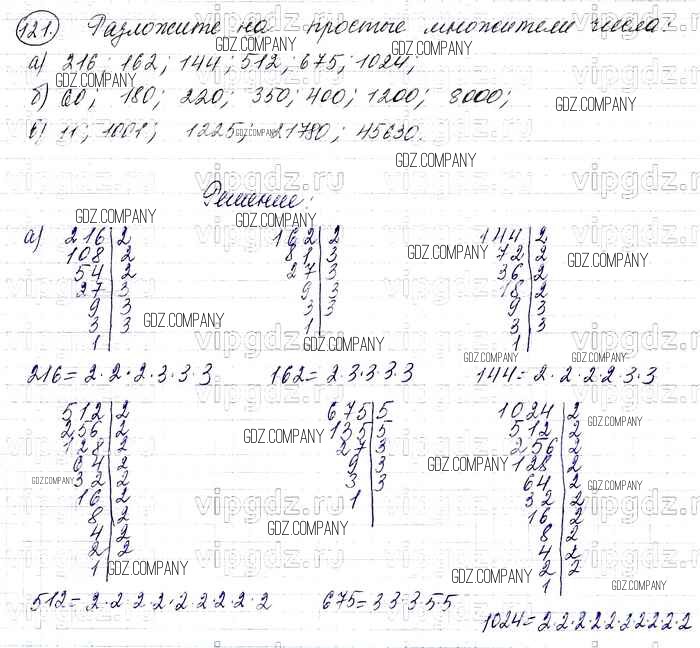 121. Разложите на простые множители числа:
а) 216; 162; 144; 512; 675; 1024;
б) 60; 180; 220; 350; 400; 1200; 8000;
в) 11; 1001; 1225; 21780; 45630.
Решение:
а) 216|2 162|2 144|2
108|2 81|3 72|2
54|2 27|3 36|2
27|3 9|3 18|2
9|3 3|3 9|3
3|3 1| 3|3
1| 1|
216=2·2·2·3·3·3 162=2·3·3·3·3 144=2·2·2·2·3·3
512|2 675|5 1024|2
256|2 135|5 512|2
128|2 27|3 256|2
64|2 9|3 128|2
32|2 3|3 64|2
16|2 1| 32|2
8|2 16|2
4|2 8|2
2|2 4|2
1| 2|2
1|
512=2·2·2·2·2·2·2·2·2 675=3·3·3·5·5
1024=2·2·2·2·2·2·2·2·2·2
GDZ.COMPANY
vipgdz.ru